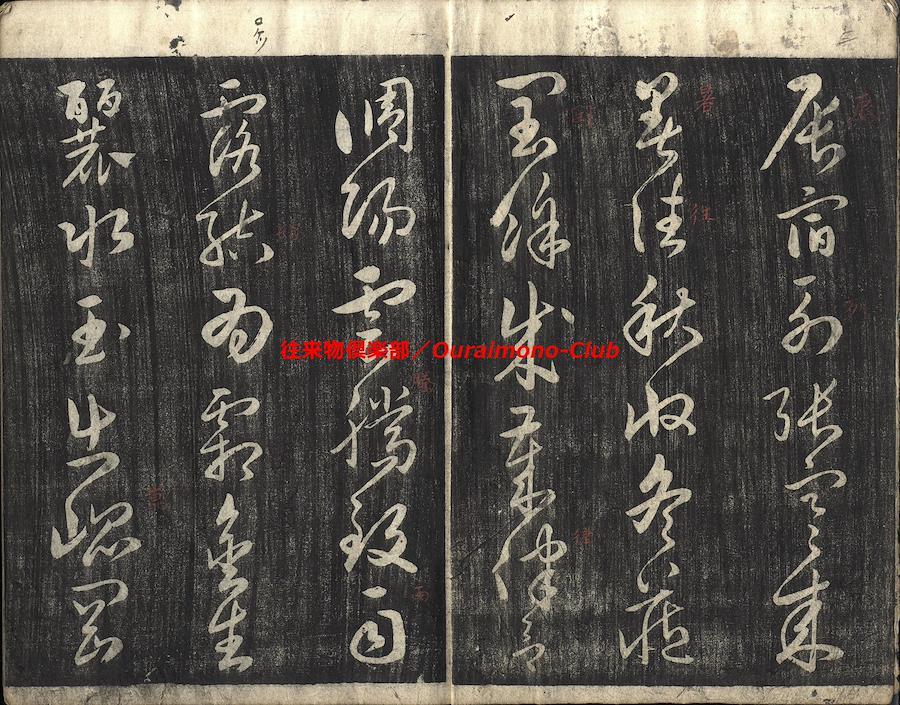 辰宿列張寒来
暑往秋收冬藏
閏餘成歳律呂
調陽雲騰致雨
露結為霜金生
麗水玉出崑岡
往来物倶楽部／Ouraimono-Club